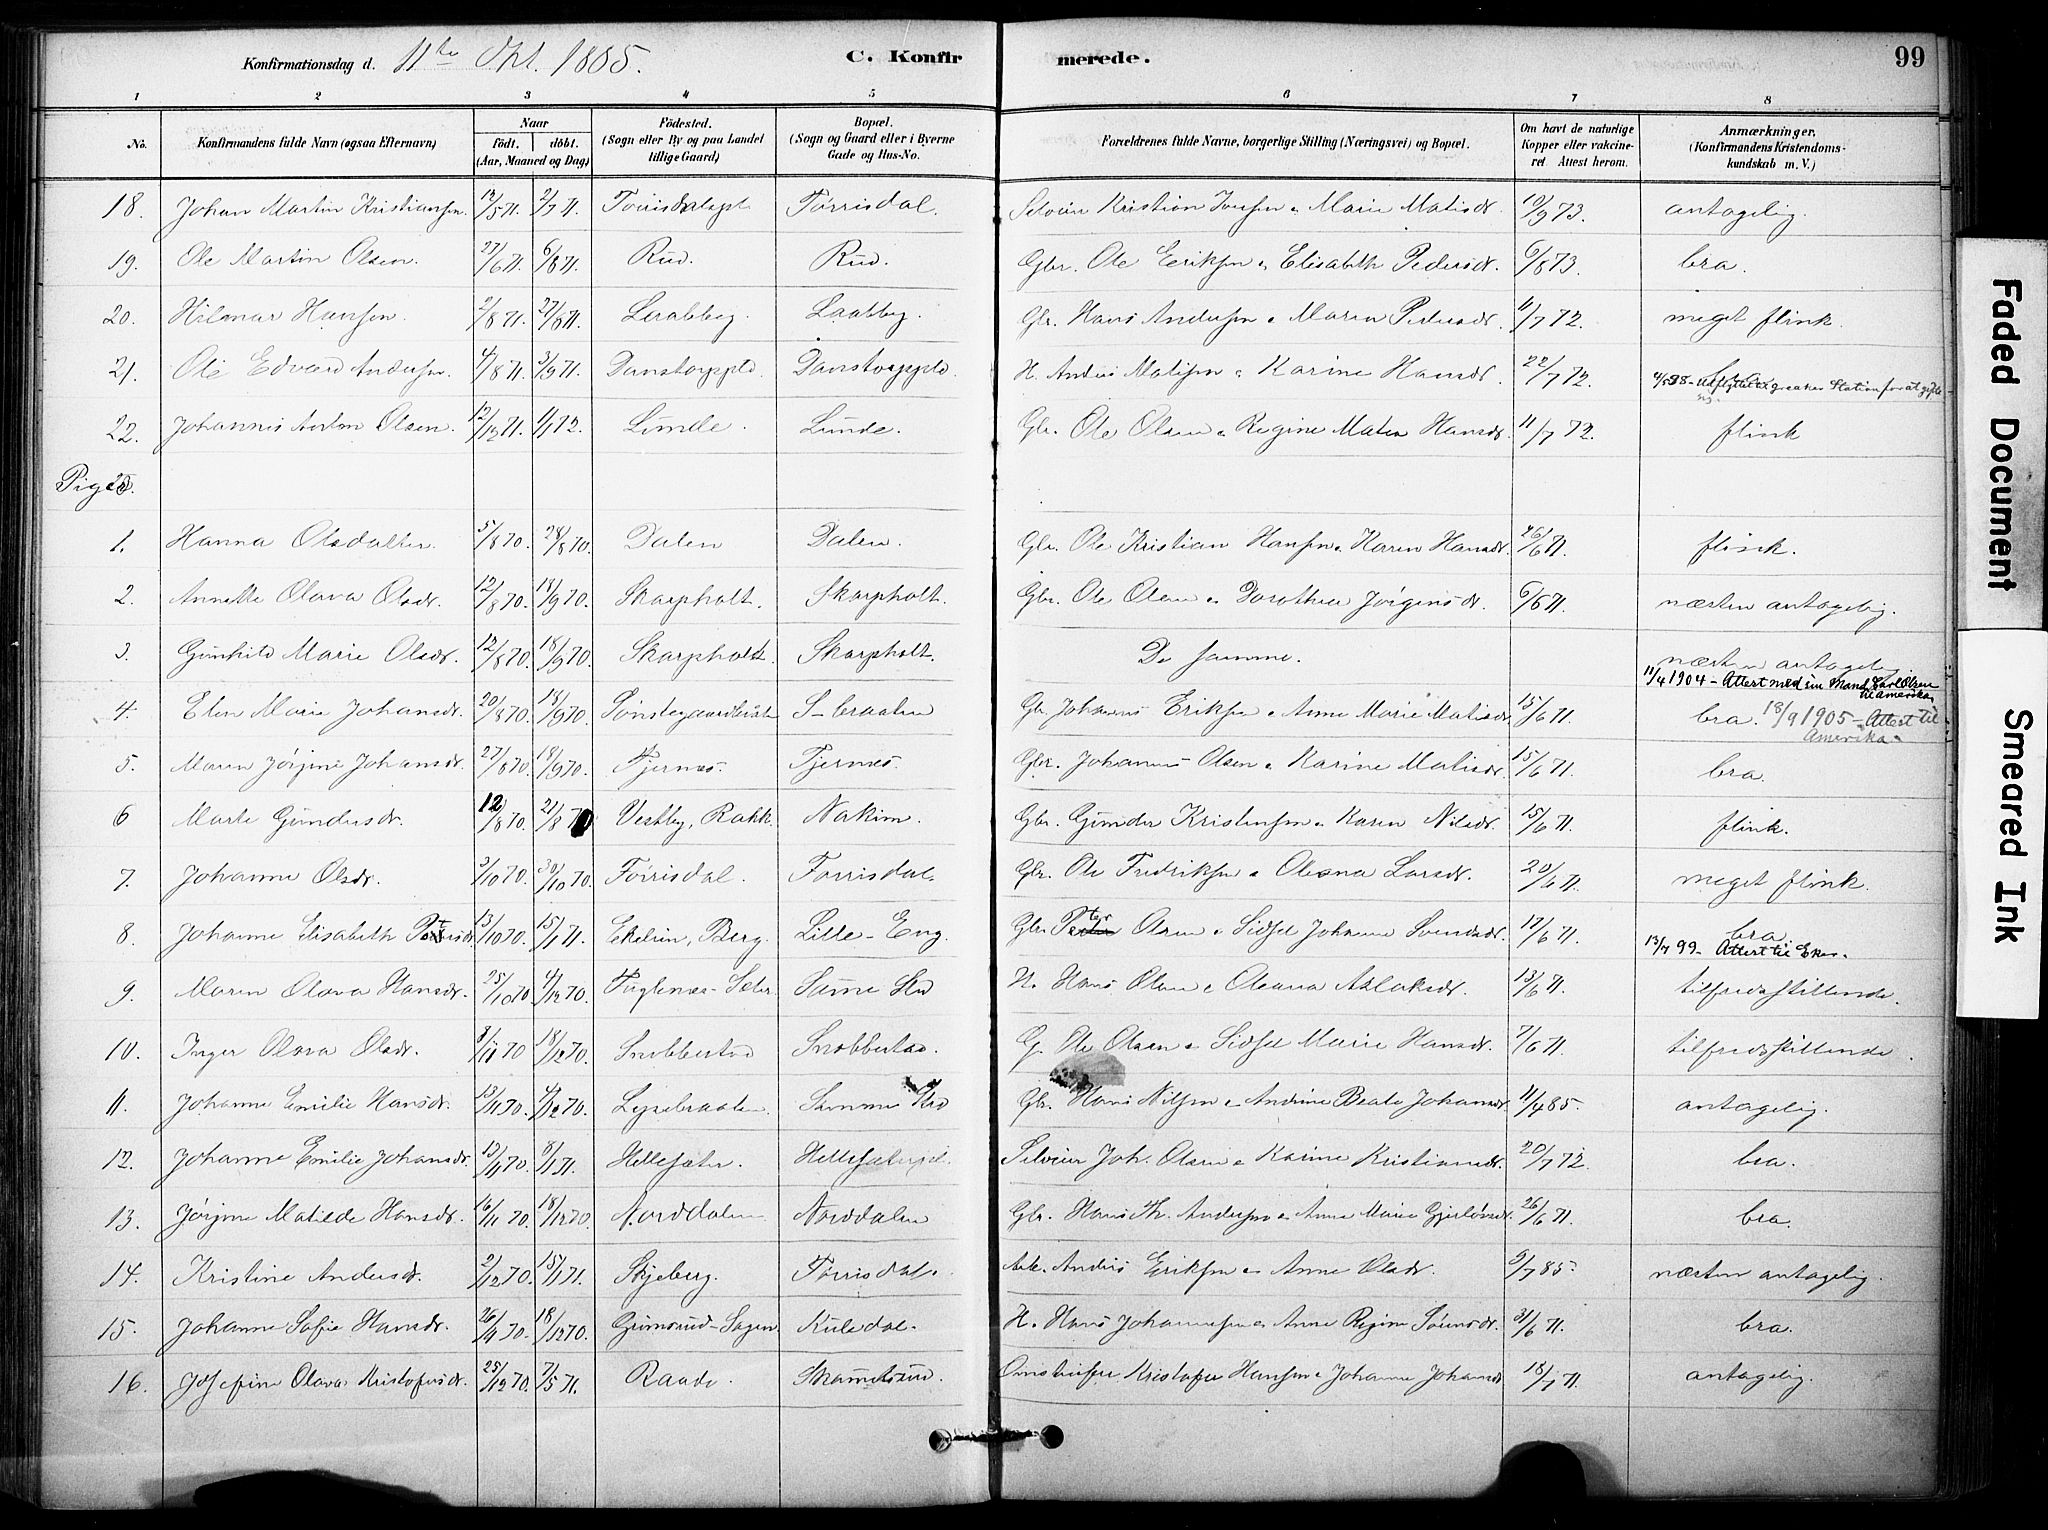 Konfirmationsdag d. 11te Okt. 1885. C. Konfirmerede. 99
1 2 3 4 5 6 7 8
No. Konfirmandens fulde Navn (ogsaa Efternavn) Naar födt. döbt. (Aar, Maaned og Dag) Födested. (Sogn eller By og paa Landet tillige Gaard) Bopæl. (Sogn og Gaard eller i Byerne Gade og Hus-No. Forældrenes fulde Navne, borgerlige Stilling (Næringsvei) og Bopæl. Om havt de naturlige Kopper eller vakcineret Attest herom. Anmærkninger. (Konfirmandens Kristendomskundskab m. V.)
18. Johan Martin Kristiansen 12/5 71. 2/7 71. Torrisdalspl. Torrisdal. Selveier Kristian & Marie Matisdr. 10/9 73. antagelig.
19. Ole Martin Olsen. 27/6 71. 6/8 71. Rud. Rud. Gbr. Ole Eriksen & Elisabeth Pedersdr. 6/8 73. bra.
20. Hilmar Hansen. 2/8 71. 27/8 71. Laabby. Laabby. Gbr. Hans Andersen & Maren Pedersdr. 11/7 72. meget flink.
21. Ole Edvard Andersen 4/8 71. 3/9 71. Danstorppld. Danstorppld. H. Anders Matisen & Karine Hansdr. 22/7 72. Station for at gifte sig.
22. Johannes Anton Olsen. 12/12 71. 1/1 72. Lunde. Lunde. Gbr. Ole Olsen & Regine Maten Hansdr. 11/7 72. flink
Piger.
1. Hanna Olsdatter. 5/8 70. 28/8 70. Dalen Dalen. Gbr. Ole Kristian Hansen & Karen Hansdr. 26/6 71. flink.
2. Annette Olava Olsdr. 12/8 70. 18/9 70. Skarpholt. Skarpholt. Gbr. Ole Olsen & Dorothea Jørgensdr. 6/6 71. næsten antagelig.
3. Gunhild Marie Olsdr. 12/8 70. 18/9 70. Skarpholt. Skarpholt. De samme. næsten antagelig
11/4 1904 - Attest med sin Mand Carl Olsen til Amerika
4. Elen Marie Johansdr. 20/8 70. 18/9 70. S-braaten Gbr. Johannes Eriksen & Anne Marie Matisdr. 15/6 71. bra. 13/9 1905 - Attest til Amerika.
5. Maren Jørgine Johansdr. 27/8 70. 18/9 70. Tjernes. Tjernes. Gbr. Johannes Olsen & Karine Matisdr. 15/6 71. bra.
6 Marte Gundersdr. 12/8 70. 21/8 70 Vestby, Rakk. Nakim. Gbr. Gunder Kristensen & Karen Nilsdr. 15/6 71. flink.
7. Johanne Olsdr. 3/10 70. 30/10 70. Torrisdal. Torrisdal. Gbr. Ole Fredriksen & Oleana Larsdr. 20/6 71. meget flink.
8. Johanne Elisabeth Petersdr. 13/10 70. 15/1 71. Ekelin, Berg. Lille-Eng. Gbr. Peter Olsen & Sidsel Johanne Svendsdr. 17/6 71. bra
13/7 99 - Attest til Eker.
9. Maren Olava Hansdr. 25/10 70. 4/12 70. Fuglenæs-Seter. Samme Sted H. Hans Olsen & Oleana Aslaksdr. 13/6 71. tilfredsstillende.
10. Inger Olava Olsdr. 8/11 70 18/12 70. Snobbestad Snobbestad. G. Ole Olsen & Sidsel Marie Hansdr. 7/6 71. tilfredsstillende.
11. Johanne Emilie Hansdr. 13/11 70. 4/12 70. Lysebraaten. Samme Sted Gbr. Hans Nilsen & Andrine Beate Johansdr. 11/4 85. antagelig.
12. Johanne Emilie Johansdr. 13/11 70. 8/1 71. Hellesæter. Hellesæterpl. Selveier Joh. Olsen & Karine Kristiansdr. 20/7 72. bra.
13. Jørgine Matilde Hansdr. 16/11 70. 18/12 70. Norddalen Norddalen Gbr. Hans Th. Andersen & Anne Marie 26/6 71. bra.
14. Kristine Andersdr. 2/12 70. 15/1 71. Skjeberg. Torrisdal. Arb. Anders Eriksen & Anne Olsdr. 9/7 85. næsten antagelig.
15. Johanne Sofie Hansdr. 26/11 70. 18/12 70. Grimsrud-Sagen. Kulsdal. H. Hans Johannesen & Anne Regine Sørensdr. 31/6 71. bra.
16. Josefine Olava Kristofersdr. 25/12 70. 7/5 71. Raade. Skamsrud. Kristofer Hansen & Johanne Johansdr. 18/7 71. antagelig.
Faded Document
Smeared Ink